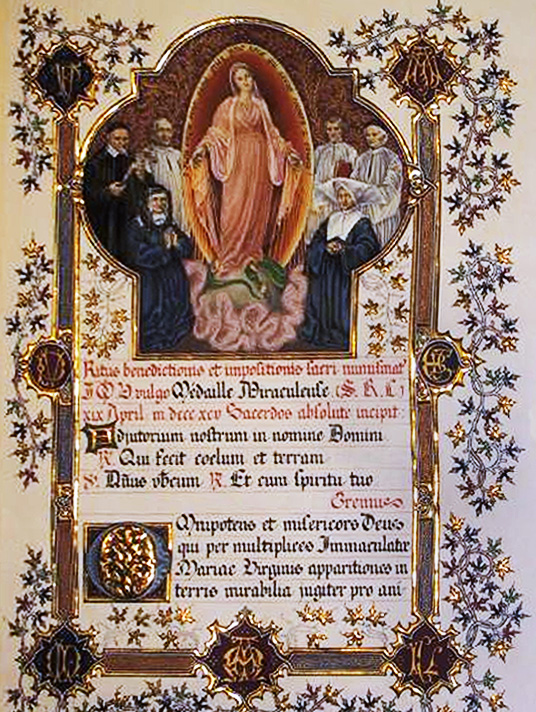 Ritus benedictionis et impositionis sacri numismat
vulgo Médaille Miraculeuse (S. R. C.)
xix April. m dccc xcv Sacerdos absolute incipit:
Adjutorium nostrum in nomine Domini
℟. Qui fecit coelum et terram
Dñus vobcum ℟. Et cum spiritu tuo
Oremus
Omnipotens et misericors Deus
qui per multiplices Immaculatae
Mariae Virginis apparitiones in
terris mirabilia jugiter pro ani